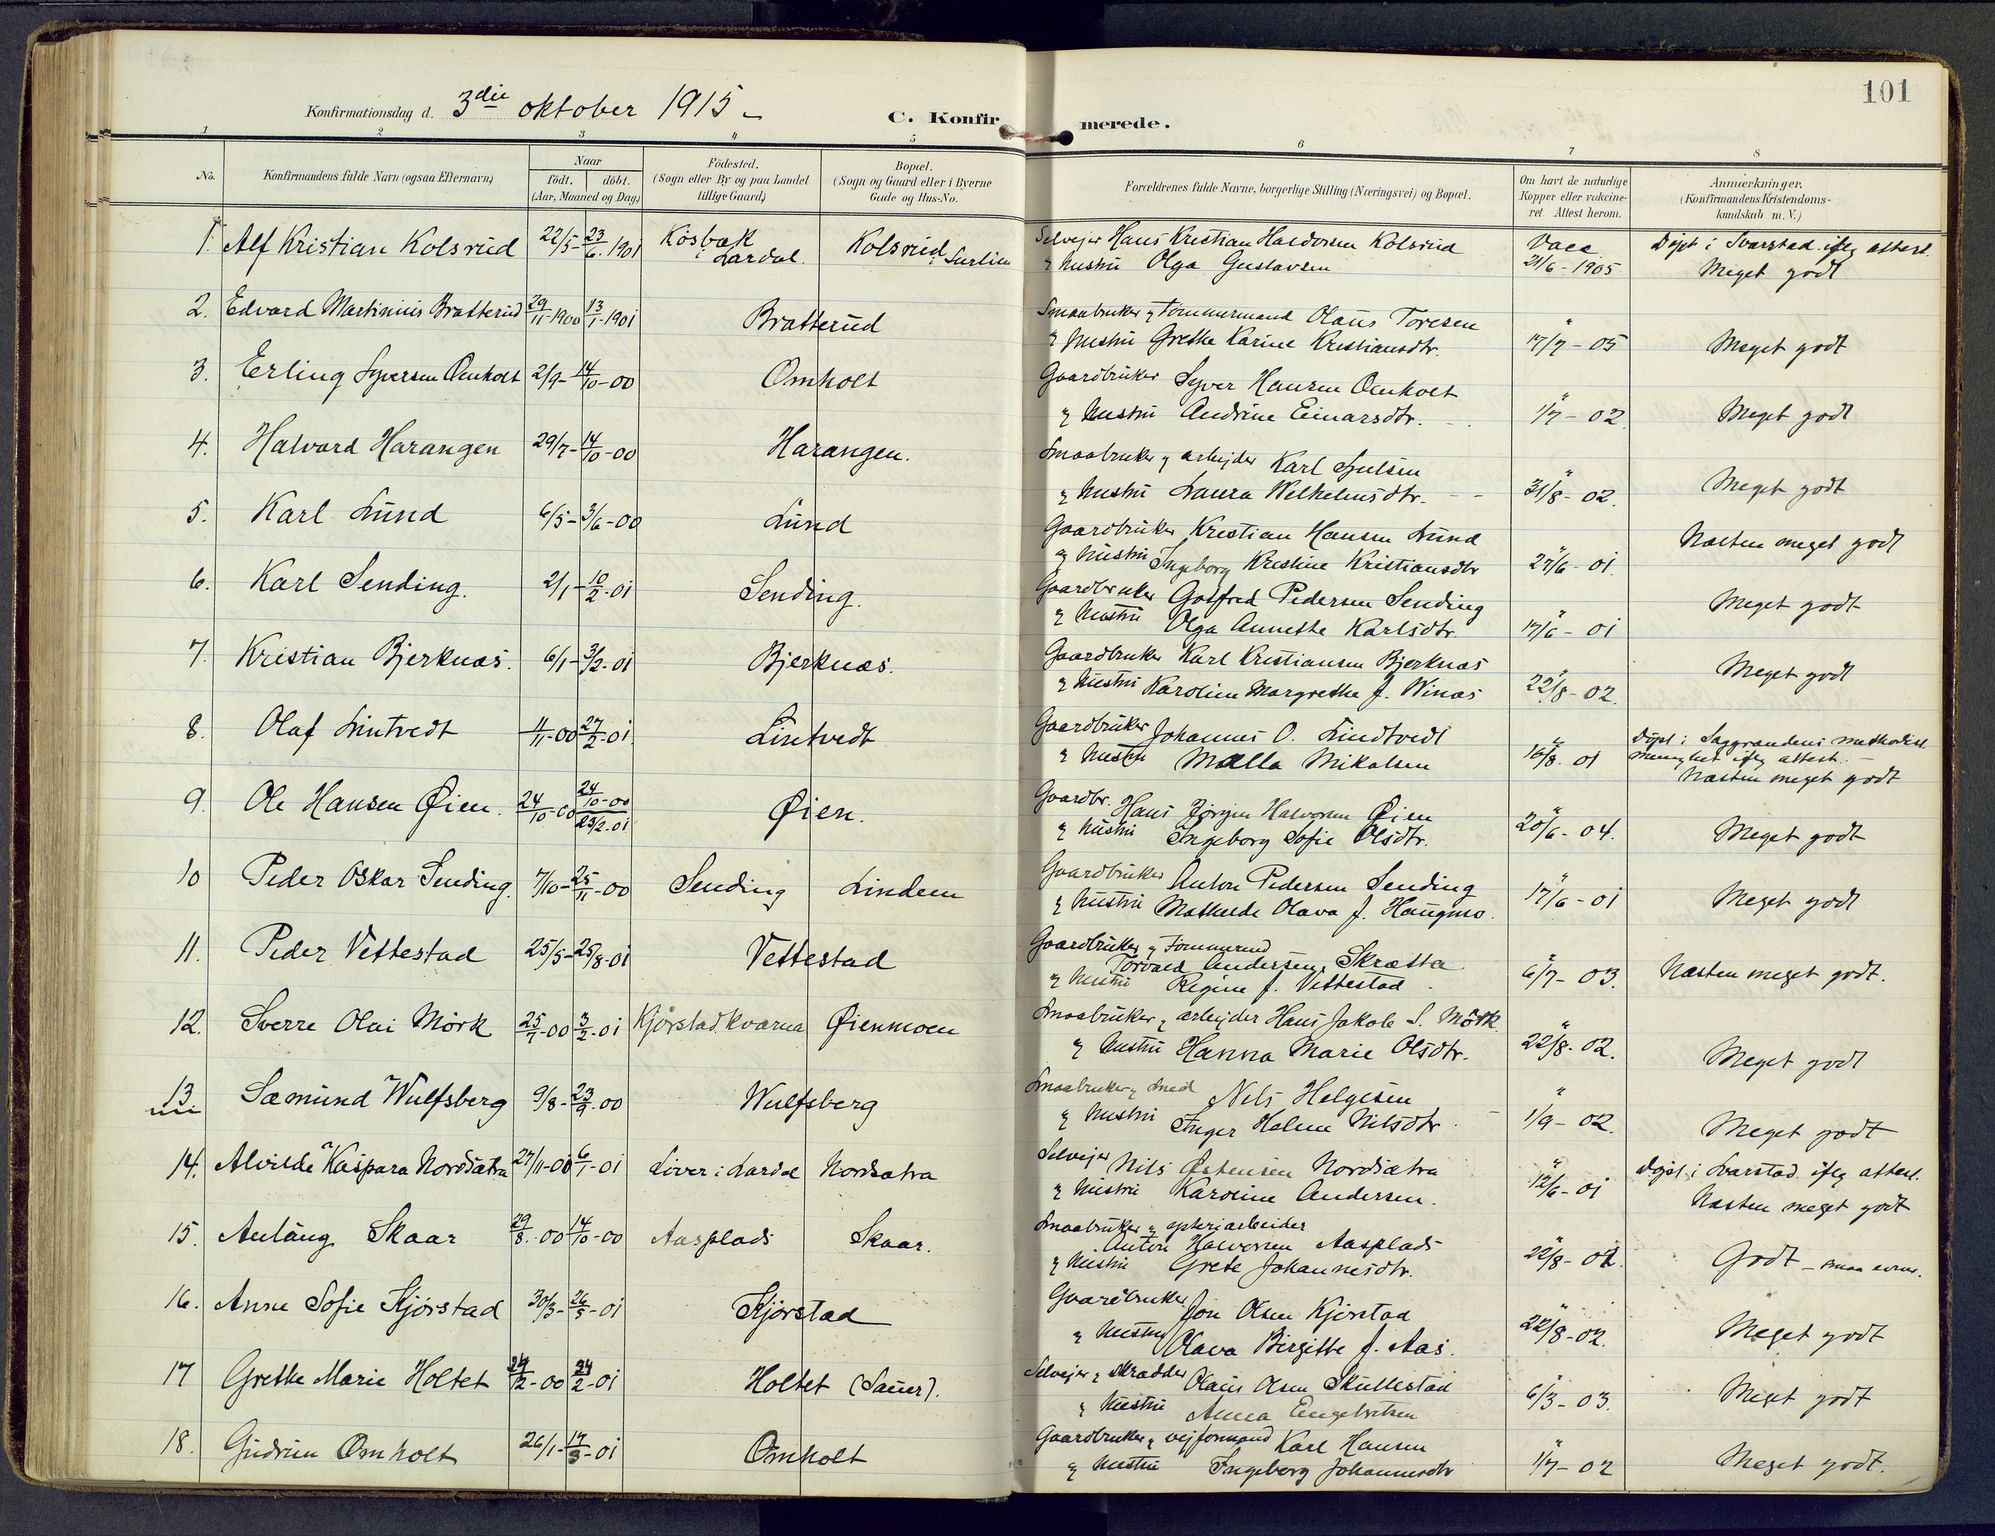 101
Konfirmationsdag d. 3die oktober 1915 –
C. Konfirmerede.
1 2 3 4 5 6 7 8
No.
Konfirmandens fulde Navn (ogsaa Efternavn)
Naar
födt. döbt.
(Aar, Maaned og Dag)
Födested.
(Sogn eller By og paa Landet
tillige Gaard)
Bopæl.
(Sogn og Gaard eller i Byerne
Gade og Hus-No.
Forældrenes fulde Navne, borgerlige Stilling (Næringsvei) og Bopæl.
Om havt de naturlige
Kopper eller vakcine-
ret Attest herom.
Anmærkninger.
(Konfirmandens Kristendoms-
kundskab m. V.)
1. Alf Kristian Kolsrud 22/5 - 23/6 1901 Kosbæk i Lardal. Kolsrud i Surlien
Selveier Hans Kristian Halvorsen Kolsrud Vacc Döpt i Svarstad iflg attest.
og Hustru Olga Gustavsen 21/6 - 1905 Meget godt
2. Edvard Martinius Bratterud 29/11-1900 13/1-1901 Bratterud
Smaabruker og Tömmermand Olaus Toresen "
og Hustru Grethe Karine Kristiansdtr. 17/7 - 05 Meget godt
3. Erling Syversen Omholt 2/9 - 14/10-00 Omholt
Gaardbruker Syver Hansen Omholt "
og Hustru Andrine Einarsdtr. 1/7 - 02 Meget godt
4. Halvard Harangen 29/7 - 14/10-00 Harangen.
Smaabruker og arbejder Karl Syversen "
og Hustru Laura Wilhelmsdtr. 31/8 - 02 Meget godt
5. Karl Lund 6/5 - 3/6-00 Lund
Gaardbruker Kristian Hansen Lund Næsten meget godt
og Hustru Ingeborg Kristine Kristiansdtr 27/6 - 01.
6. Karl Sending. 2/1 - 10/2-01 Sending.
Gaardbruker Gotfred Pedersen Sending Meget godt
og Hustru Olga Annette Karlsdtr. 17/6 - 01
7. Kristian Bjerknæs. 6/1 - 3/2-01 Bjerknæs.
Gaardbruker Karl Kristiansen Bjerknæs Meget godt
og Hustru Karoline Margrethe f. Winæs 22/8 - 02.
8. Olaf Lintvedt 4/11-00 27/2-01. Lintvedt
Gaardbruker Johannes O. Lindtvedt " Döpt i Saggrendens methodist
og Hustru Mælla Mikalsen 16/8. 01 menighet iflg attest. –
Næsten meget godt
9. Ole Hansen Øien. 24/10-00 24/10-00 23/2-01 Øien.
Gaardbr. Hans Jørgen Halvorsen Øien "
og Hustru Ingeborg Sofie Olsdtr. 20/6 - 04. Meget godt
10 Peder Oskar Sending. 7/10 - 25/11-00 Sending Lindem
Gaardbruker Anton Pedersen Sending "
og Hustru Mathilde Olava f. Haugmo. 17/6 - 01 Meget godt
11. Peder Vettestad 25/5 - 25/8-01 Vettestad
Gaardbruker og Tömmermd
Torvald Andersen Skrætta "
og Hustru Regine f. Vettestad. 6/7 - 03. Næsten meget godt.
12. Sverre Olai Mørk 25/7-00 3/2-01 Kjørstad.kværna Øienmoen
Smaabruker og arbejder Hans Jakob S. Mørk "
og Hustru Hanna Marie Olsdtr. 22/8 - 02. Meget godt
13 Sæmund Wulfsberg 9/8 - 23/9-00 Wulfsberg
Smaabruker og Smed Nils Helgesen "
og Hustru Inger Helene Nilsdtr. 1/9 - 02. Meget godt
14. Alvilde Kaspara Nordsætra 27/11-00 6/1-01 Liver i Lardal Nordsætra
Selveier Nils Østensen Nordsætra " Döpt i Svarstad iflg attest.
og Hustru Karoline Andersen. 12/6 - 01 Næsten meget godt
15. Anlaug Skaar 29/8.00 14/10-00 Aasplads Skaar.
Smaabruker og opsteriarbeider
Anton Halvorsen Aasplads "
og Hustru Grete Johannesdtr. 22/8 - 02. Godt – smaa evner.
16. Anne Sofie Kjørstad 30/3 - 26/5-01 Kjørstad
Gaardbruker Jon Olsen Kjørstad "
og Hustru Olava Birgitte f. Aas. 22/8-02. Meget godt
17 Grethe Marie Holtet 24/12-00 24/2-01 Holtet (Sauer).
Selveier og Skrædder Olaus Olsen Skullestad "
og Hustru Anna Engebretsen 6/3 - 03. Meget godt
18. Gudrun Omholt 26/1 - 17/3-01 Omholt
Gaardbruker og vejformand Karl Hansen "
og Hustru Ingeborg Johannesdtr 1/7 - 02 Meget godt.